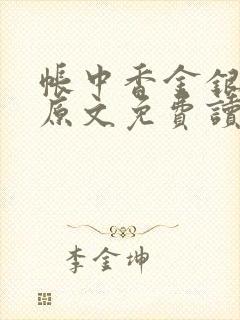 帳中香金銀
原文免費讀
李金坤